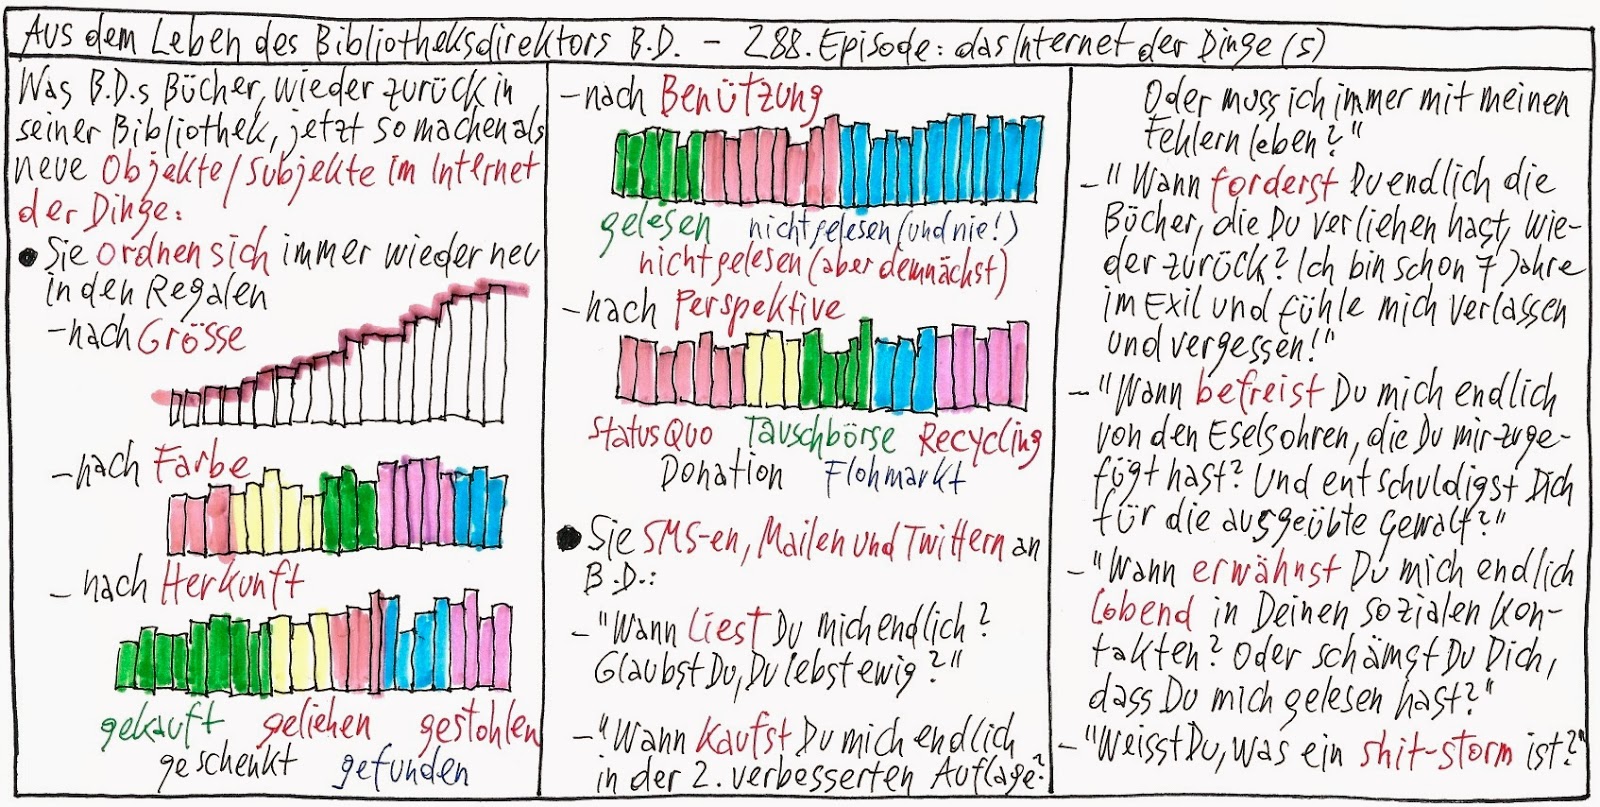 Aus dem Leben des Bibliotheksdirektors B.D. - 288. Episode: das Internet der Dinge(s)
Was B.D.s Bücher, wieder zurück in
seiner Bibliothek, jetzt so machen als
neue Objekte/Subjekte im Internet
der Dinge:
● Sie ordnen sich immer wieder neu
in den Regalen
- nach Grösse
- nach Farbe
- nach Herkunft
gekauft geliehen gestohlen
geschenkt gefunden
- nach Benützung
gelesen nicht gelesen (und nie!)
nicht gelesen (aber demnächst)
- nach Perspektive
Status Quo Tauschbörse Recycling
Donation Flohmarkt
● Sie SMS-en, Mailen und Twittern an
B.D.:
- "Wann liest Du mich endlich?
Glaubst Du, Du lebst ewig?"
- "Wann kaufst Du mich endlich
in der 2. verbesserten Auflage?
Oder muss ich immer mit meinen
Fehlern leben?"
- "Wann forderst Du endlich die
Bücher, die Du verliehen hast, wie-
der zurück? Ich bin schon 7 Jahre
im Exil und fühle mich verlassen
und vergessen!"
- "Wann befreist Du mich endlich
von den Eselsohren, die Du mir zuge-
fügt hast? Und entschuldigst Dich
für die ausgeübte Gewalt?"
- "Wann erwähnst Du mich endlich
lobend in Deinen sozialen Kon-
takten? Oder schämst Du Dich,
dass Du mich gelesen hast?"
- "Weisst Du, was ein shit-storm ist?"